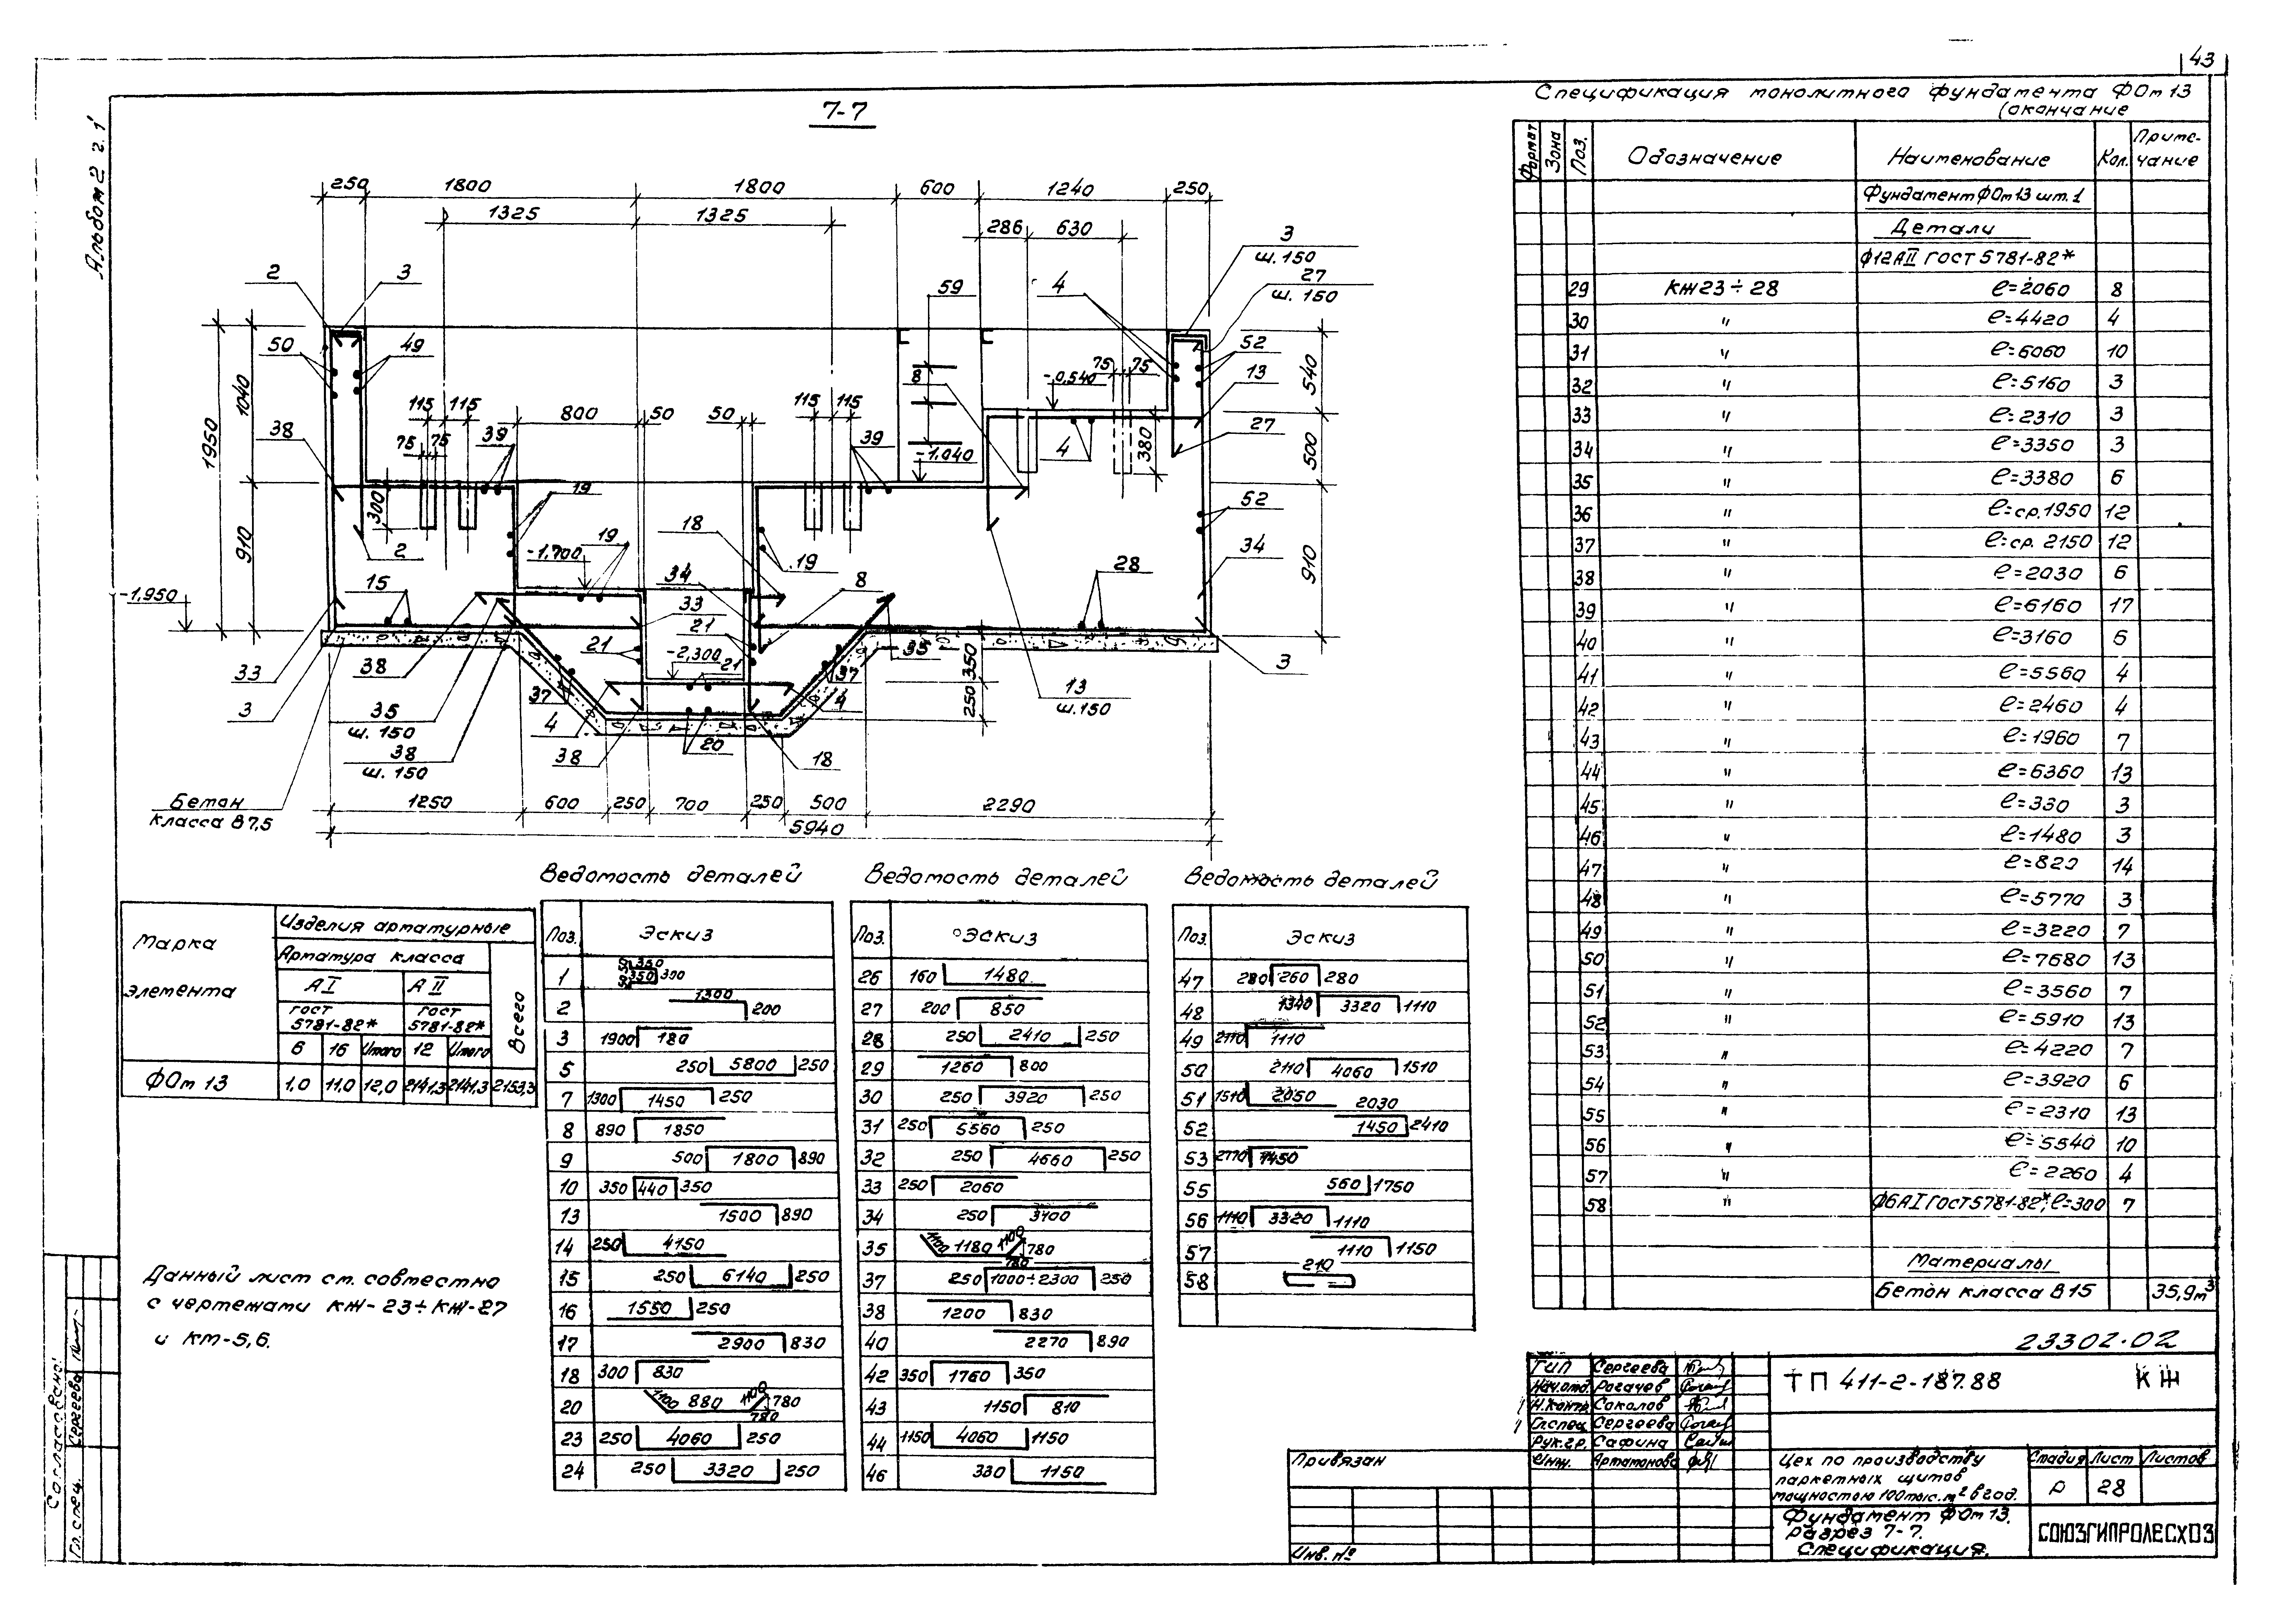 43
Альбом 2 г. 1
7-7
Спецификация монолитного фундамента ФОм 13
(окончание
250 1800 1800 600 1240 250
1325 1325
286 630
2 3
3
ш. 150
27
ш. 150
59 4
50 49
8 -0,540 75 75
52
13
1950 1040 910
540 500 910
38
115 115 800 50 50 115 115
75 75 39 39
-1.040 4 380 27
300 19
2 18 52
19 -1,700
34 19 8 28 34
15
-1.950
33
21 21
-2,300 21
33 38 37 37 35 3
350
250
3 35
ш. 150
4 4 13
ш.150
38
ш. 150
38 20 18
Бетон
класса В7,5
1250 600 250 700 250 500 2290
5940
Формат Зона Поз. Обозначение Наименование Кол. Приме-чание
Фундамент ФОм 13 шт. 1
Детали
Ф12АII ГОСТ 5781-82*
29 КЖ23÷28 ℓ=2060 8
30 " ℓ=4420 4
31 " ℓ=6060 10
32 " ℓ=5160 3
33 " ℓ=2310 3
34 " ℓ=3350 3
35 " ℓ=3380 6
36 " ℓ=ср.1950 12
37 " ℓ=ср. 2150 12
38 " ℓ=2030 6
39 " ℓ=6160 17
40 " ℓ=3160 6
41 " ℓ=5560 4
42 " ℓ=2460 4
43 " ℓ=1960 7
44 " ℓ=6360 13
45 " ℓ=330 3
46 " ℓ=1480 3
47 " ℓ=820 14
48 " ℓ=5770 3
49 " ℓ=3220 7
50 " ℓ=7680 13
51 " ℓ=3560 7
52 " ℓ=5910 13
53 " ℓ=4220 7
54 " ℓ=3920 6
55 " ℓ=2310 13
56 " ℓ=5540 10
57 " ℓ=2260 4
58 " Ф6АI ГОСТ 5781-82*, ℓ=300 7
Материалы
Бетон класса В15 35,9м³
Марка элемента
Изделия арматурные
Арматура класса
АI АII
ГОСТ 5781-82* ГОСТ 5781-82*
Всего
6 16 Итого 12 Итого
ФОм 13 1,0 11,0 12,0 2141,3 2141,3 2153,3
Ведомость деталей
Поз. Эскиз
1 50 350 350 300
2 1300 200
3 1900 180
5 250 5800 250
7 1300 1450 250
8 890 1850
9 500 1800 890
10 350 440 350
13 1500 890
14 250 4150
15 250 6140 250
16 1550 250
17 2900 830
18 300 830
20 1100 880 1100 780 780
23 250 4060 250
24 250 3320 250
Ведомость деталей
Поз. Эскиз
26 160 1480
27 200 850
28 250 2410 250
29 1260 800
30 250 3920 250
31 250 5560 250
32 250 4660 250
33 250 2060
34 250 3100
35 1100 1180 1100 780 780
37 250 1000÷2300 250
38 1200 830
40 2270 890
42 350 1760 350
43 1150 810
44 1150 4060 1150
46 330 1150
Ведомость деталей
Поз. Эскиз
47 280 260 280
48 1340 3320 1110
49 2110 1110
50 2110 4060 1510
51 1510 2050
52 2030 1450 2410
53 2770 1450
55 560 1750
56 1110 3320 1110
57 1110 1150
58 210
Данный лист см. совместно
с чертежами КЖ-23÷КЖ-27
и КМ-5,6.
Согласовано:
Гл. спец. Сергеева
23302-02
ГИП Сергеева
Нач.отд. Рогачев
Н.контр. Соколов
Гл.спец. Сергеева
Рук.гр. Сафина
Инж. Артамонова
ТП 411-2-187.88 КЖ
Цех по производству
паркетных щитов
мощностью 100 тыс. м² в год.
Стадия Лист Листов
Р 28
Фундамент ФОм 13.
Разрез 7-7.
Спецификация.
СОЮЗГИПРОЛЕСХОЗ
Привязан
Инв. №